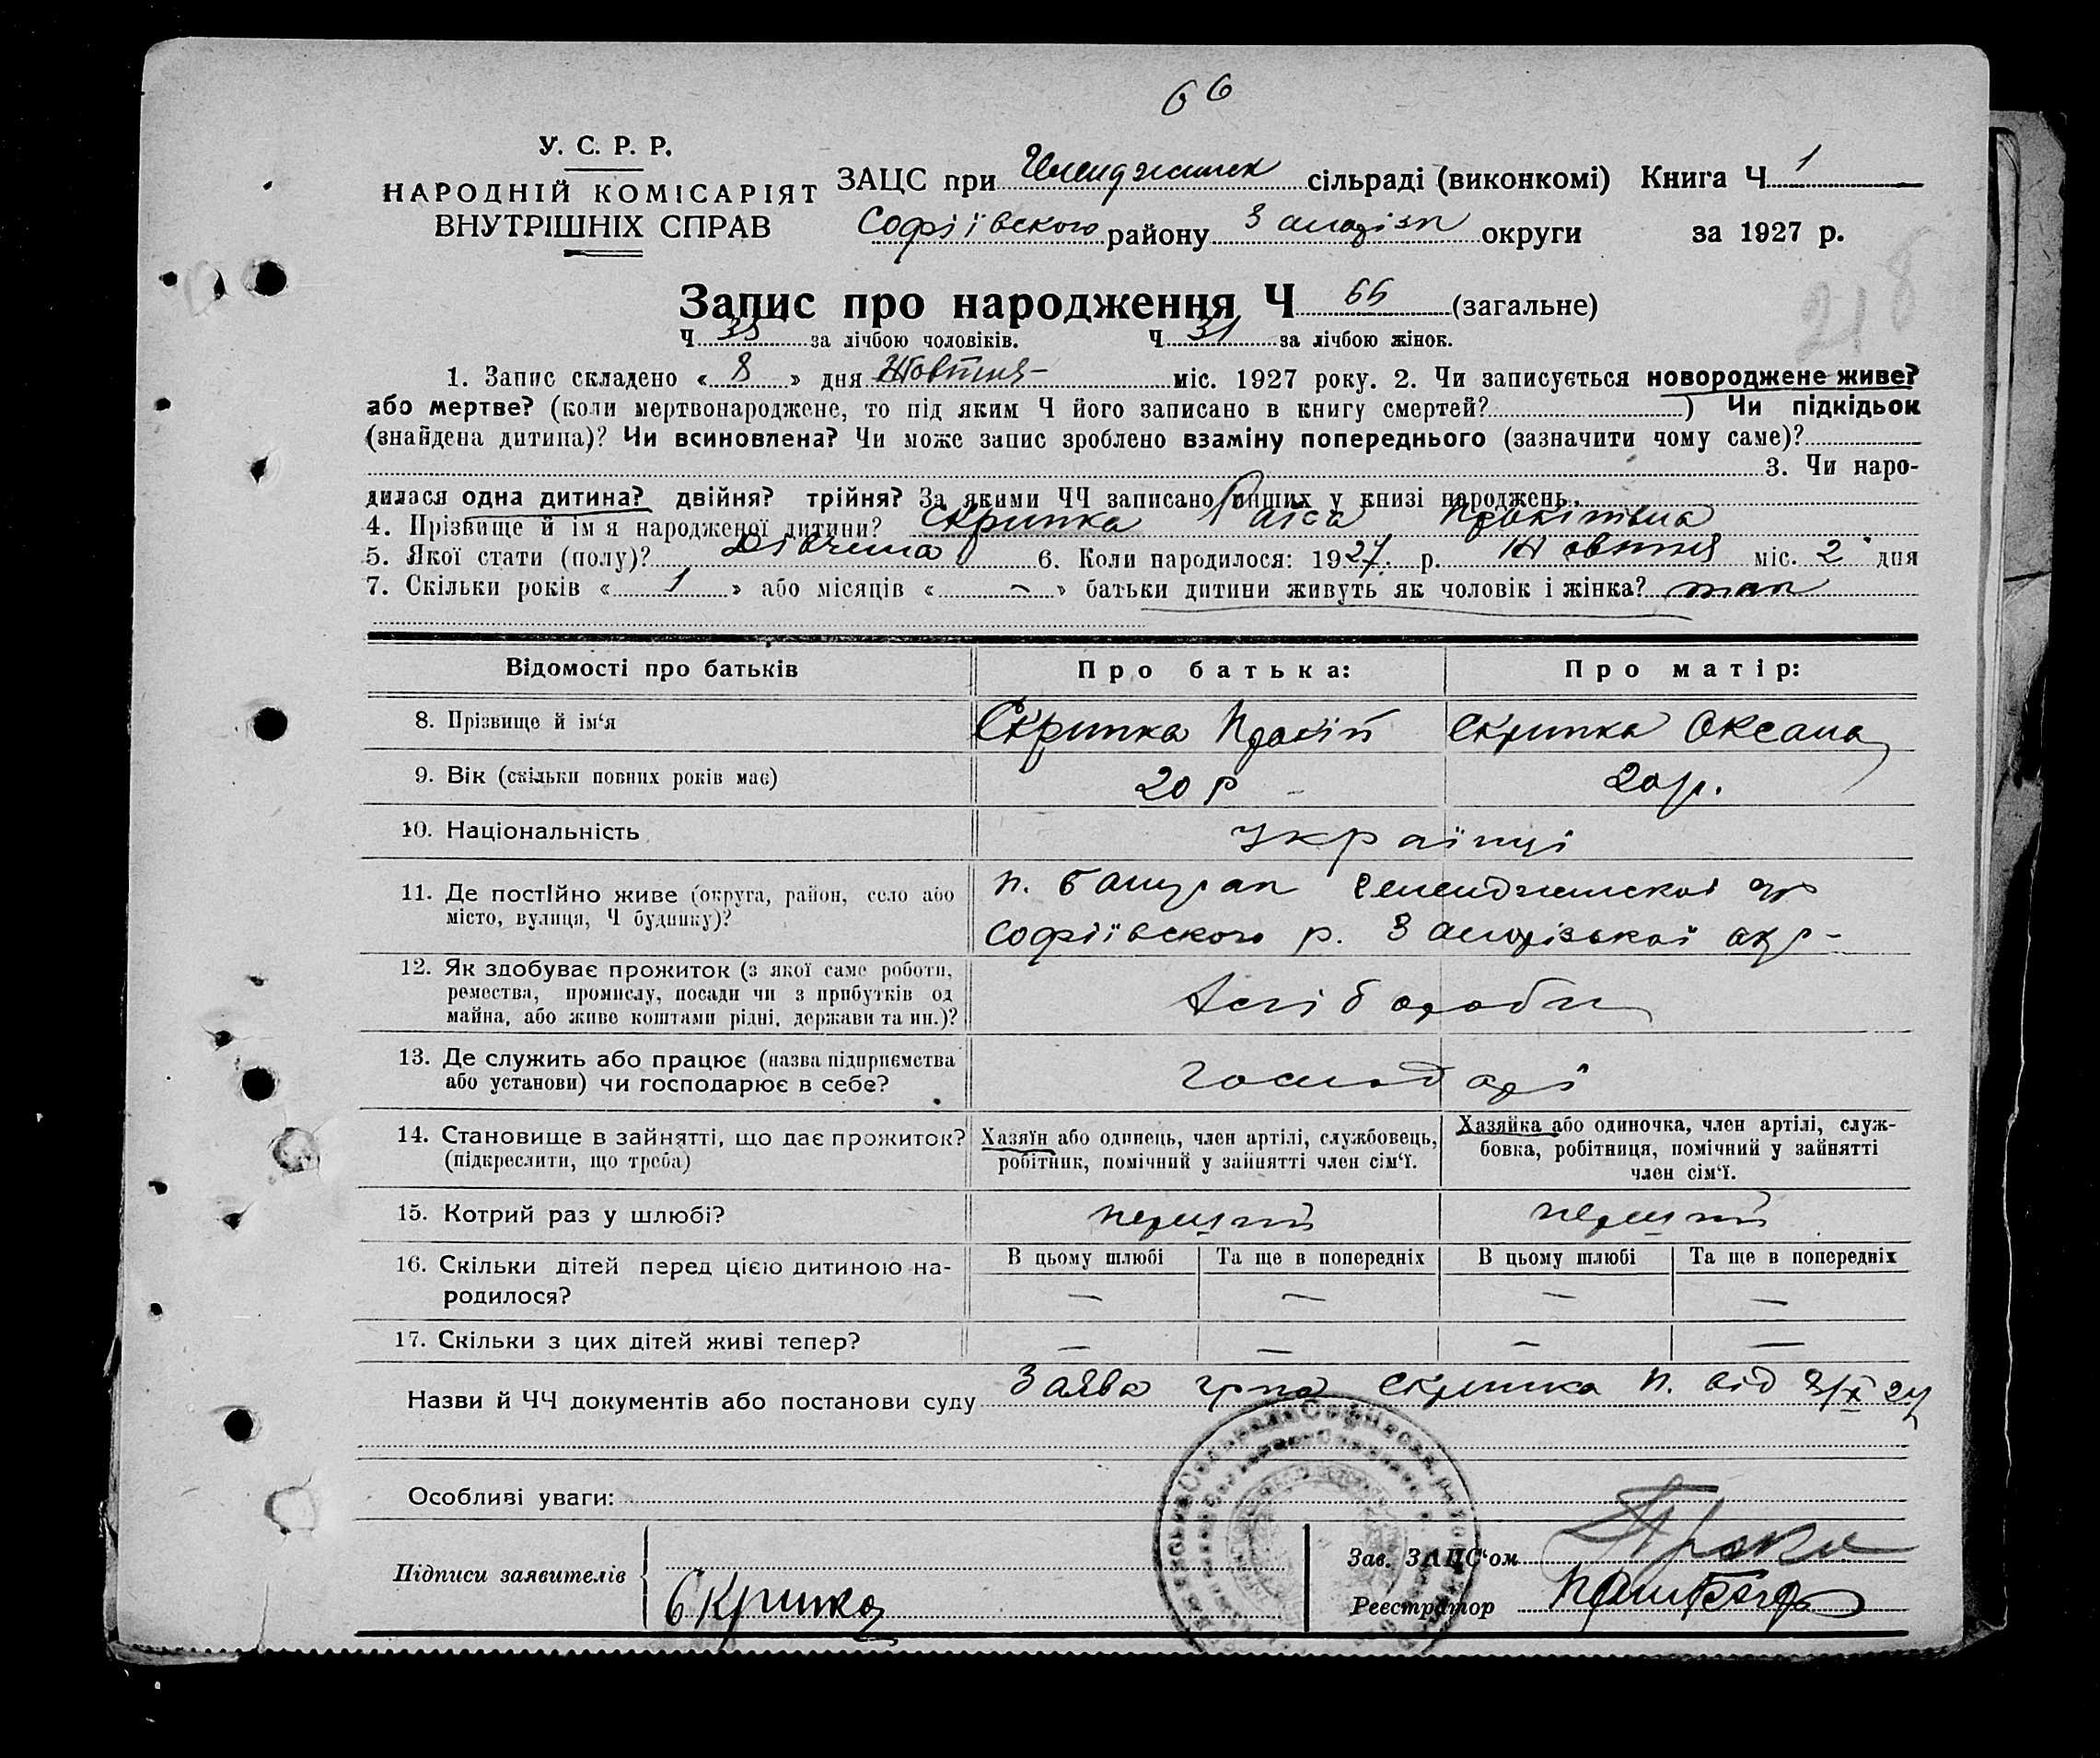 66
У. С. Р. Р.
НАРОДНІЙ КОМІСАРІЯТ
ВНУТРІШНІХ СПРАВ
ЗАЦС при сільраді (виконкомі) Книга Ч 1
Софіївского району округи за 1927 р.
Запис про народження Ч 66 (загальне)
Ч 35 за лічбою чоловіків. Ч 31 за лічбою жінок.
1. Запис складено « 8 » дня Жовтня міс. 1927 року. 2. Чи записується новороджене живе?
або мертве? (коли мертвонароджене, то під яким Ч його записано в книгу смертей? ) Чи підкідьок
(знайдена дитина)? Чи всиновлена? Чи може запис зроблено взаміну попереднього (зазначити чому саме)?
3. Чи наро-
дилася одна дитина? двійня? трійня? За якими ЧЧ записано инших у книзі народжень
4. Прізвище й ім'я народженої дитини? Скрипка Раіса
5. Якої стати (полу)? Дівчина 6. Коли народилося: 1927 р. Жовтня міс. 2 дня
7. Скільки років « 1 » або місяців « – » батьки дитини живуть як чоловік і жінка? так
Відомості про батьків Про батька: Про матір:
8. Прізвище й ім'я Скрипка Скрипка Оксана
9. Вік (скільки повних років має) 20 р 20 р.
10. Національність Українці
11. Де постійно живе (округа, район, село або
місто, вулиця, Ч будинку)?
Софіївского р. Запорізької окр-
12. Як здобуває прожиток (з якої саме роботи,
ремества, промислу, посади чи з прибутків од
майна, або живе коштами рідні, держави та ин.)?
Хліборобн
13. Де служить або працює (назва підприємства
або установи) чи господарює в себе?
Господарі
14. Становище в зайнятті, що дає прожиток?
(підкреслити, що треба)
Хазяїн або одинець, член артілі, службовець,
робітник, помічний у зайнятті член сім'ї.
Хазяйка або одиночка, член артілі, служ-
бовка, робітниця, помічний у зайнятті
член сім'ї.
15. Котрий раз у шлюбі? перший перший
16. Скільки дітей перед цією дитиною на-
родилося?
В цьому шлюбі Та ще в попередніх В цьому шлюбі Та ще в попередніх
– – – –
17. Скільки з цих дітей живі тепер? – – – –
Назви й ЧЧ документів або постанови суду Заява гр-на Скрипка П. від 8/X 27
Особливі уваги:
Підписи заявителів
Скрипка
Зав. ЗАЦС'ом
Реєстратор